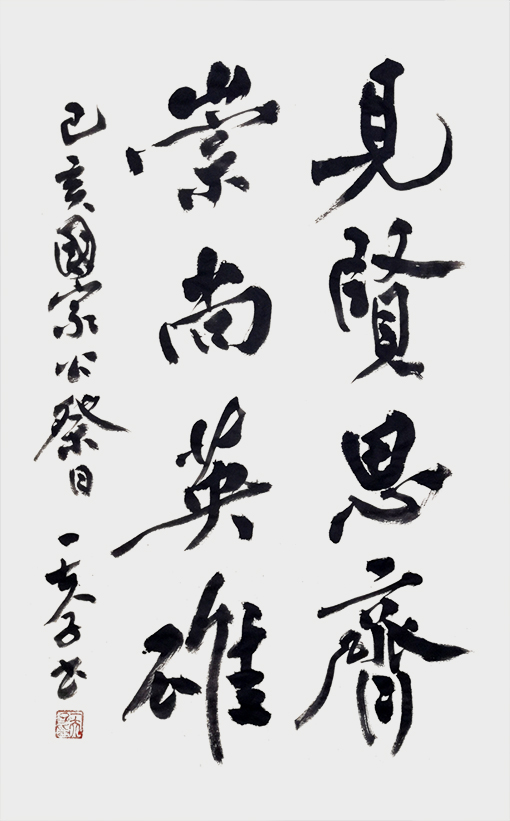 見賢思齊
崇尚英雄
己亥國家公祭日 一夫子书